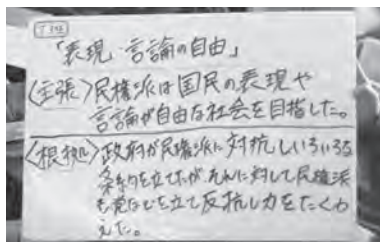 「表現 言論の自由」
〈主張〉民権派は国民の表現や
言論が自由な社会を目指した。
〈根拠〉政府が民権派に対抗しいろいろな
条約を立てたが、それに対して民権派
も党などを立て反抗し力をたくわ
えた。